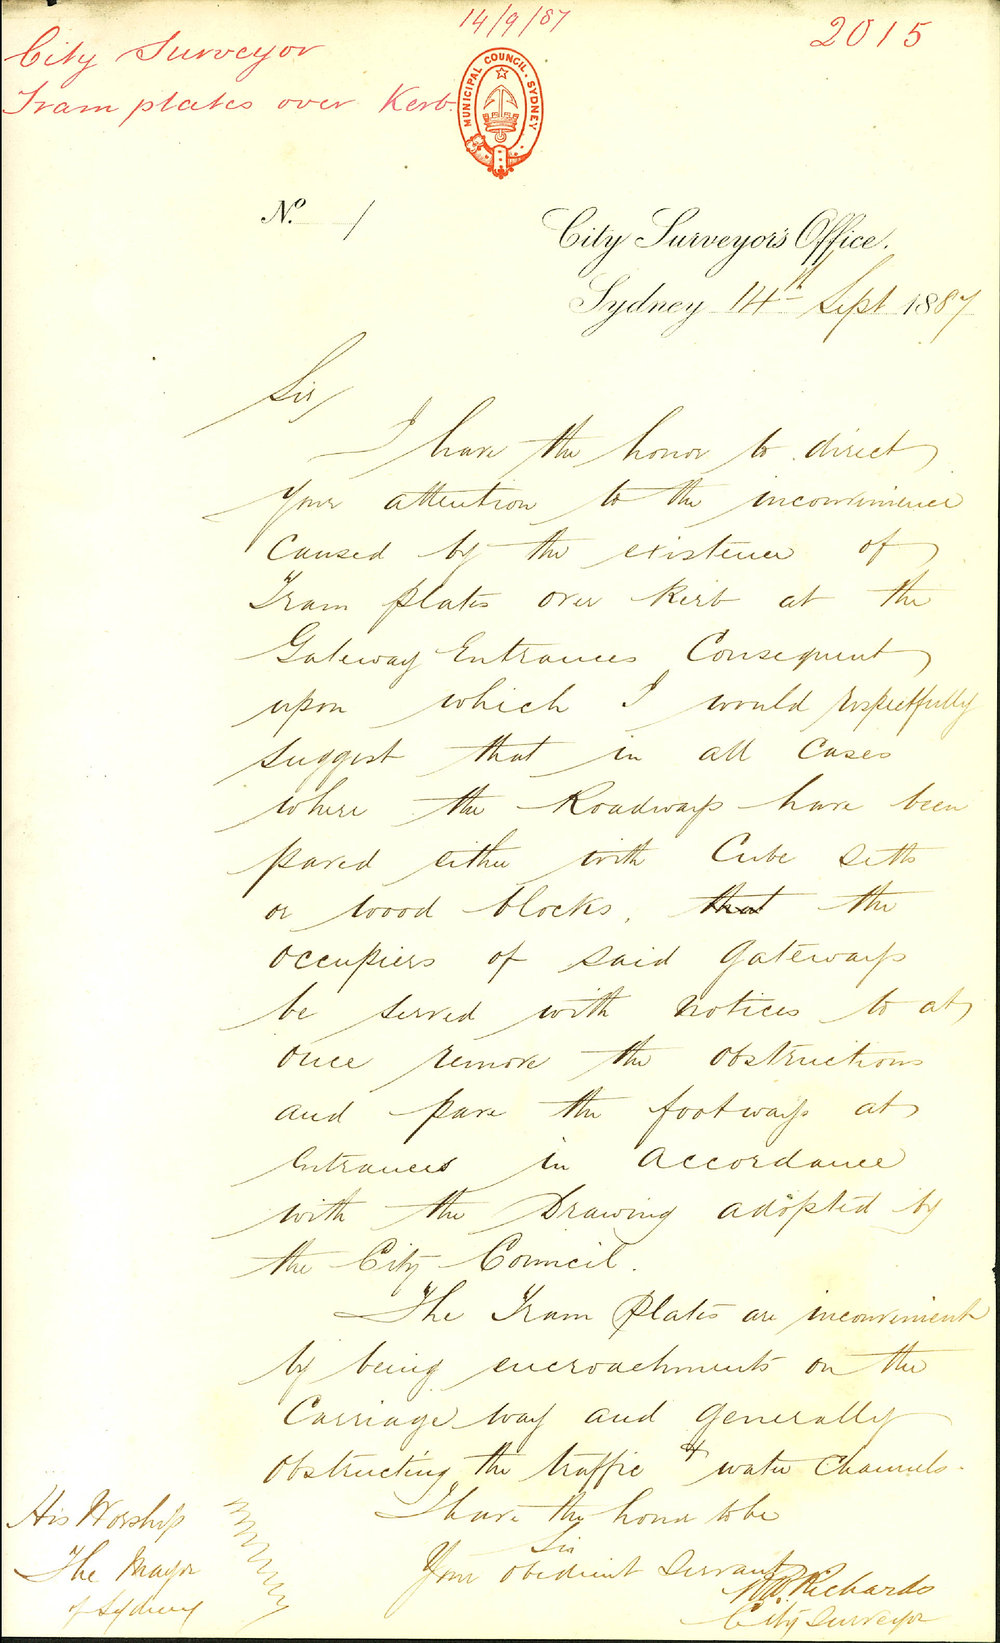 14/9/87
2015
City Surveyor
Tram plates over Kerb
MUNICIPAL COUNCIL. SYDNEY
No. 1
City Surveyor's Office.
Sydney 14th Sept 1887
Sir,
I have the honor to direct
your attention to the inconvenience
caused by the existence of
Tram plates over Kerb at the
Gateway Entrances Consequent
upon which I would respectfully
suggest that in all cases
where the Roadways have been
paved either with Cube Setts
or wood blocks, that the
occupiers of said Gateways
be served with notices to at
once remove the obstructions
and pave the footways at
entrances in accordance
with the Drawing adopted by
the City Council.
The Tram Plates are inconvenient
by being encroachments on the
Carriage way and generally
obstructing the traffic & water channels.
I have the honor to be
Sir
Your obedient Servant
Richards
City Surveyor
His Worship
The Mayor
of Sydney